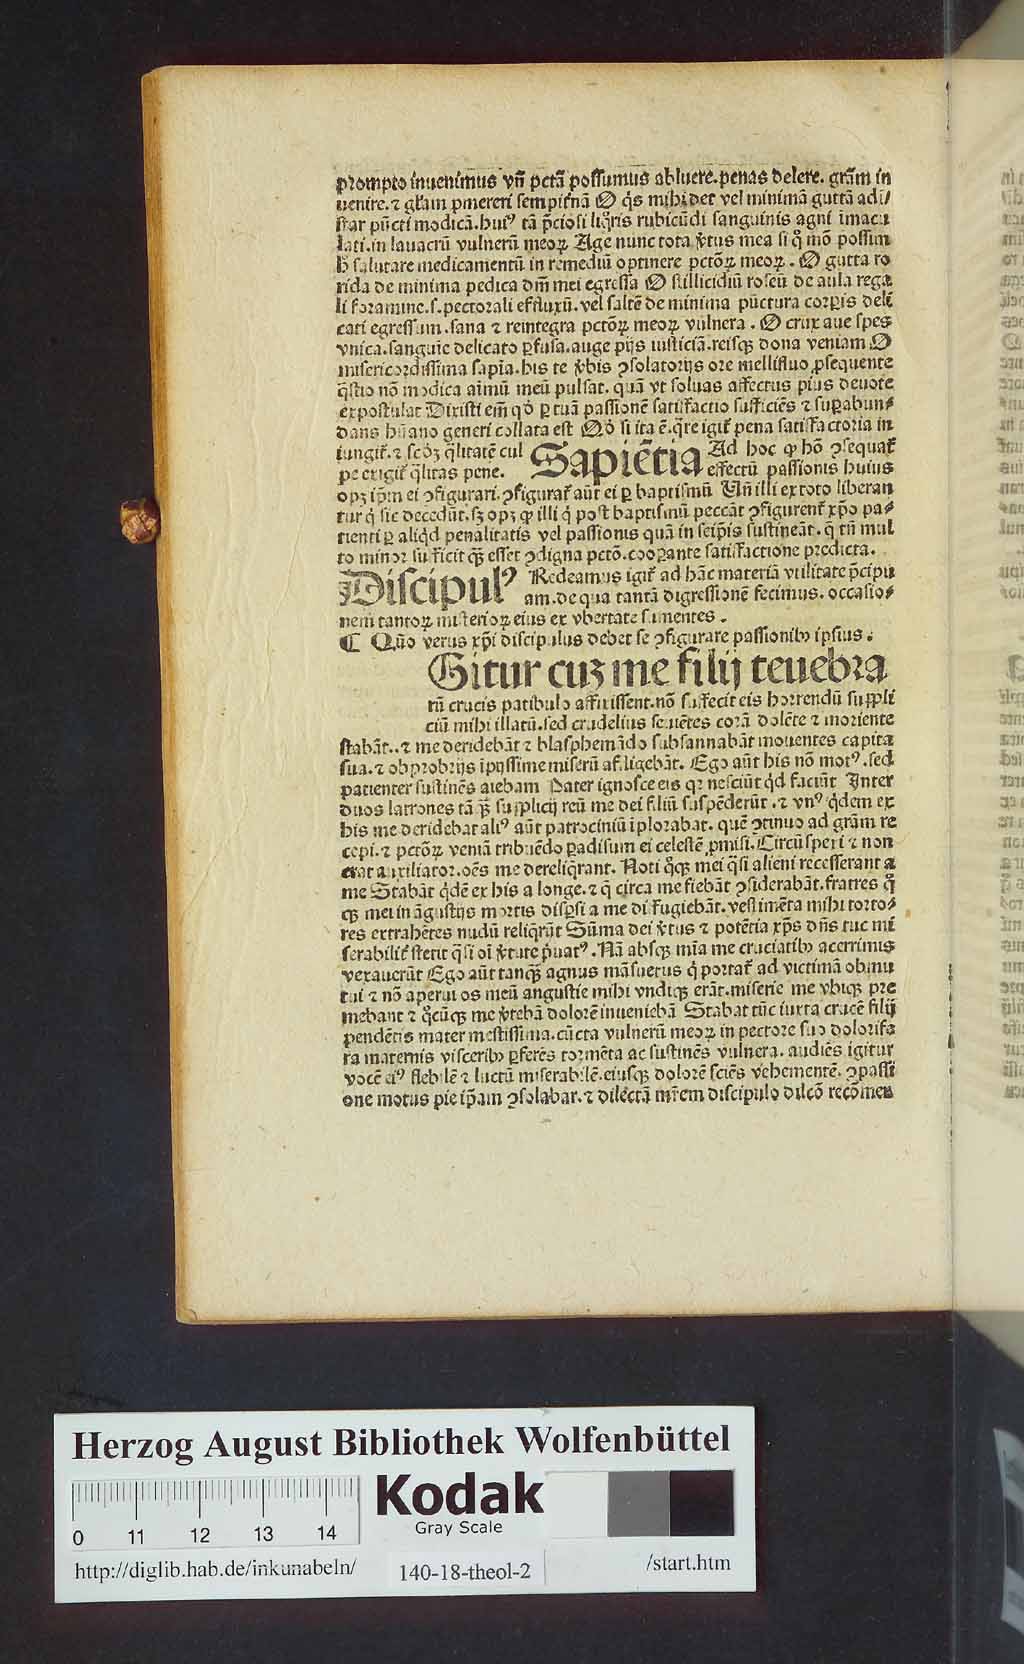 prompto inuenimus vñ pctā possumus abluere.penas delere. grãm in
uenire.⁊ gl̃am pmereri sempit̃nā O q̇s mihi det vel minimā guttā adi/
star pūcti modicā.huiꝰ tā p̃ciosi liq̃ris rubicūdi sanguinis agni ĩmacu
lati.in lauacrū vulnerū meoꝝ Age nunc tota ṽtus mea si q̊ mō possim
ḣ salutare medicamentū in remediū optinere pctōꝝ meoꝝ. O gutta ro
rida de minima pedica dm̄ mei egressa O stillicidiū roseū de aula rega
li foramine.s.pectorali effluxū.vel saltē de minima pūctura corꝑis deli
cati egressum.sana ⁊ reintegra pctōꝝ meoꝝ vulnera. O crux aue spes
vnica.sanguīe delicato ꝑfusa.auge pijs iusticiā.reisqꝫ dona veniam O
misericordissima sapīa.his te v̄bis ꝯsolatorijs ore mellifluo ꝓsequente
q̄stio nō modica aīmū meū pulsat. quā vt soluas affectus pius deuote
expostulat Dixisti em̄ qđ ꝑ tuā passionē satisfactio sufficiēs ⁊ suꝑabun⸗
dans hūano generi collata est Qđ si ita ē.q̄re igit̃ pena satisfactoria in
iungit̃.⁊ scđꝫ q̄litatē cul
pe exigit̃ q̄litas pene.
Sapiētia Ad hoc ꝙ hō ꝯsequat̃
effectū passionis huius
opꝫ ip̄m ei ꝯfigurari.ꝯfigurat̃ aūt ei ꝑ baptismū Vn̄ illi ex toto liberan
tur q̇ sic decedūt.sꝫ opꝫ ꝙ illi q̇ post baptismū peccāt ꝯfigurent̃ xp̄o pa⸗
tienti ꝑ aliqđ penalitatis vel passionis quā in seip̄is sustineāt. q̄ tn̄ mul
to minor sufficit qꝫ̄ esset ꝯdigna pctō.cooꝑante satisfactione predicta.
Discipulꝰ Redeamus igit̃ ad hāc materiā vtilitate p̄cipu
am.de qua tantā digressionē fecimus. occasio⸗
nem tantoꝝ misterioꝝ eius ex vbertate sumentes.
¶ Quō verus xp̄i discipulus debet se ꝯfigurare passionibꝫ ipsius.
Gitur cuꝫ me filij teuebra
rū crucis patibulo affixissent.nō suffecit eis horrendū suppli
ciū mihi illatū.sed crudelius seuiētes corā dolēte ⁊ moriente
stabāt..⁊ me deridebāt ⁊ blasphemādo subsannabāt mouentes capita
sua.⁊ obprobrijs ĩpijssime miserū affligebāt. Ego aūt his nō motꝰ.sed
patienter sustinēs aiebam Pater ignosce eis qꝛ nesciūt qđ faciūt Inter
duos latrones tā qꝫ̄ supplicij reū me dei filiū suspēderūt.⁊ vnꝰ q̇dem ex
his me deridebat aliꝰ aūt patrociniū ĩplorabat. quē ꝯtinuo ad grām re
cepi.⁊ pctōꝝ veniā tribuēdo ꝑadisum ei celestē ꝓmisi. Circūspexi ⁊ non
erat auxiliator.oēs me dereliq̇rant. Noti q̊qꝫ mei q̄si alieni recesserant a
me Stabāt q̇dē ex his a longe.⁊ q̄ circa me fiebāt ꝯsiderabāt.fratres q̊
qꝫ mei in āgustijs mortis disꝑsi a me diffugiebāt.vestimēta mihi torto⸗
res extrahētes nudū reliq̇rūt Sūma dei ṽtus ⁊ potētia xp̄s dn̄s tuc mi
serabilit̃ stetit q̄si oī ṽtute ṗuatꝰ. Nā absqꝫ mīa me cruciatibꝫ acerrimis
vexauerūt Ego aūt tanqꝫ̄ agnus māsuetus q̇ portat̃ ad victimā obmu
tui ⁊ nō aperui os meū angustie mihi vndiqꝫ erāt.miserie me vbiqꝫ pre
mebant ⁊ q̊cūqꝫ me v̄tebā dolorē inueniebā Stabat tūc iuxta crucē filij
pendētis mater mestissima.cūcta vulnerū meoꝝ in pectore suo dolorifa
ra maternis visceribꝫ ꝑferēs tormēta ac sustinēs vulnera. audiēs igitur
vocē eiꝰ flebilē ⁊ luctū miserabilē.eiusqꝫ dolorē sciēs vehementē. ꝯpassi
one motus pie ip̄am ꝯsolabar.⁊ dilectā mr̄em discipulo dilcō recōmen
Herzog August Bibliothek Wolfenbüttel
0 11 12 13 14
Kodak
Gray Scale
http://diglib.hab.de/inkunabeln/ 140-18-theol-2 /start.htm